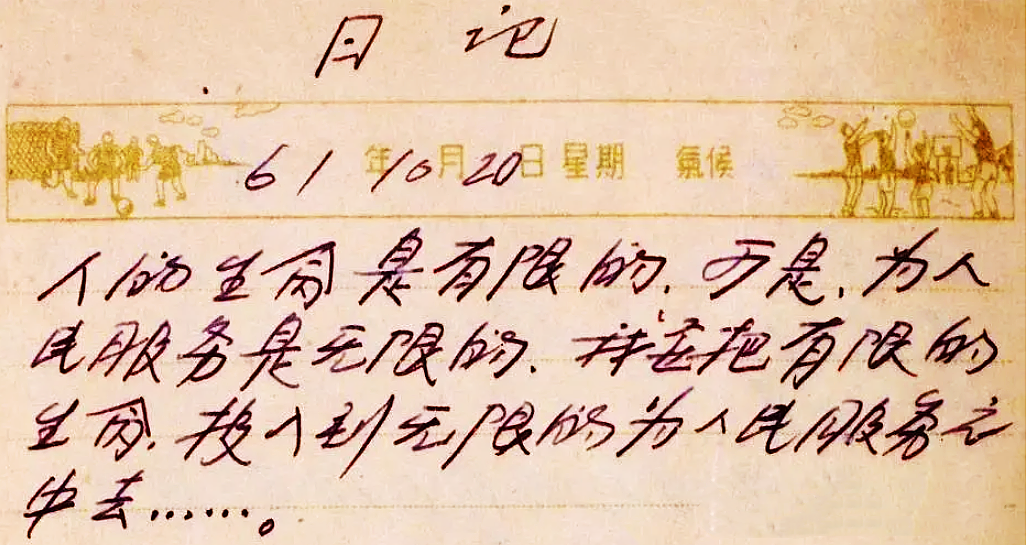 日记
61年10月20日星期 氣候
人的生命是有限的,可是,为人
民服务是无限的,我要把有限的
生命,投入到无限的为人民服务之
中去……。